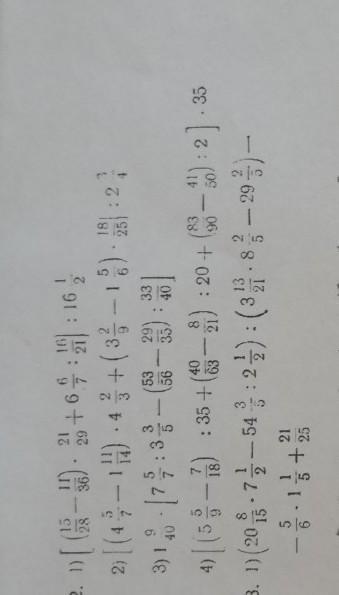 2. 1) [(15/28 − 11/36) · 21/29 + 6 6/7 : 16/21] : 16 1/2
2) [(4 5/7 − 1 11/14) · 4 2/3 + (3 2/9 − 1 5/6) · 18/25] : 2 3/4
3) 1 9/40 · [7 5/7 : 3 3/5 − (53/56 − 29/35) : 33/40]
4) [(5 5/9 − 7/18) : 35 + (40/63 − 8/21) : 20 + (83/90 − 41/50) : 2] · 35
3. 1) (20 8/15 · 7 1/2 − 54 3/5 : 2 1/2) : (3 13/21 · 8 2/5 − 29 2/5) −
− 5/6 · 1 1/5 + 21/25